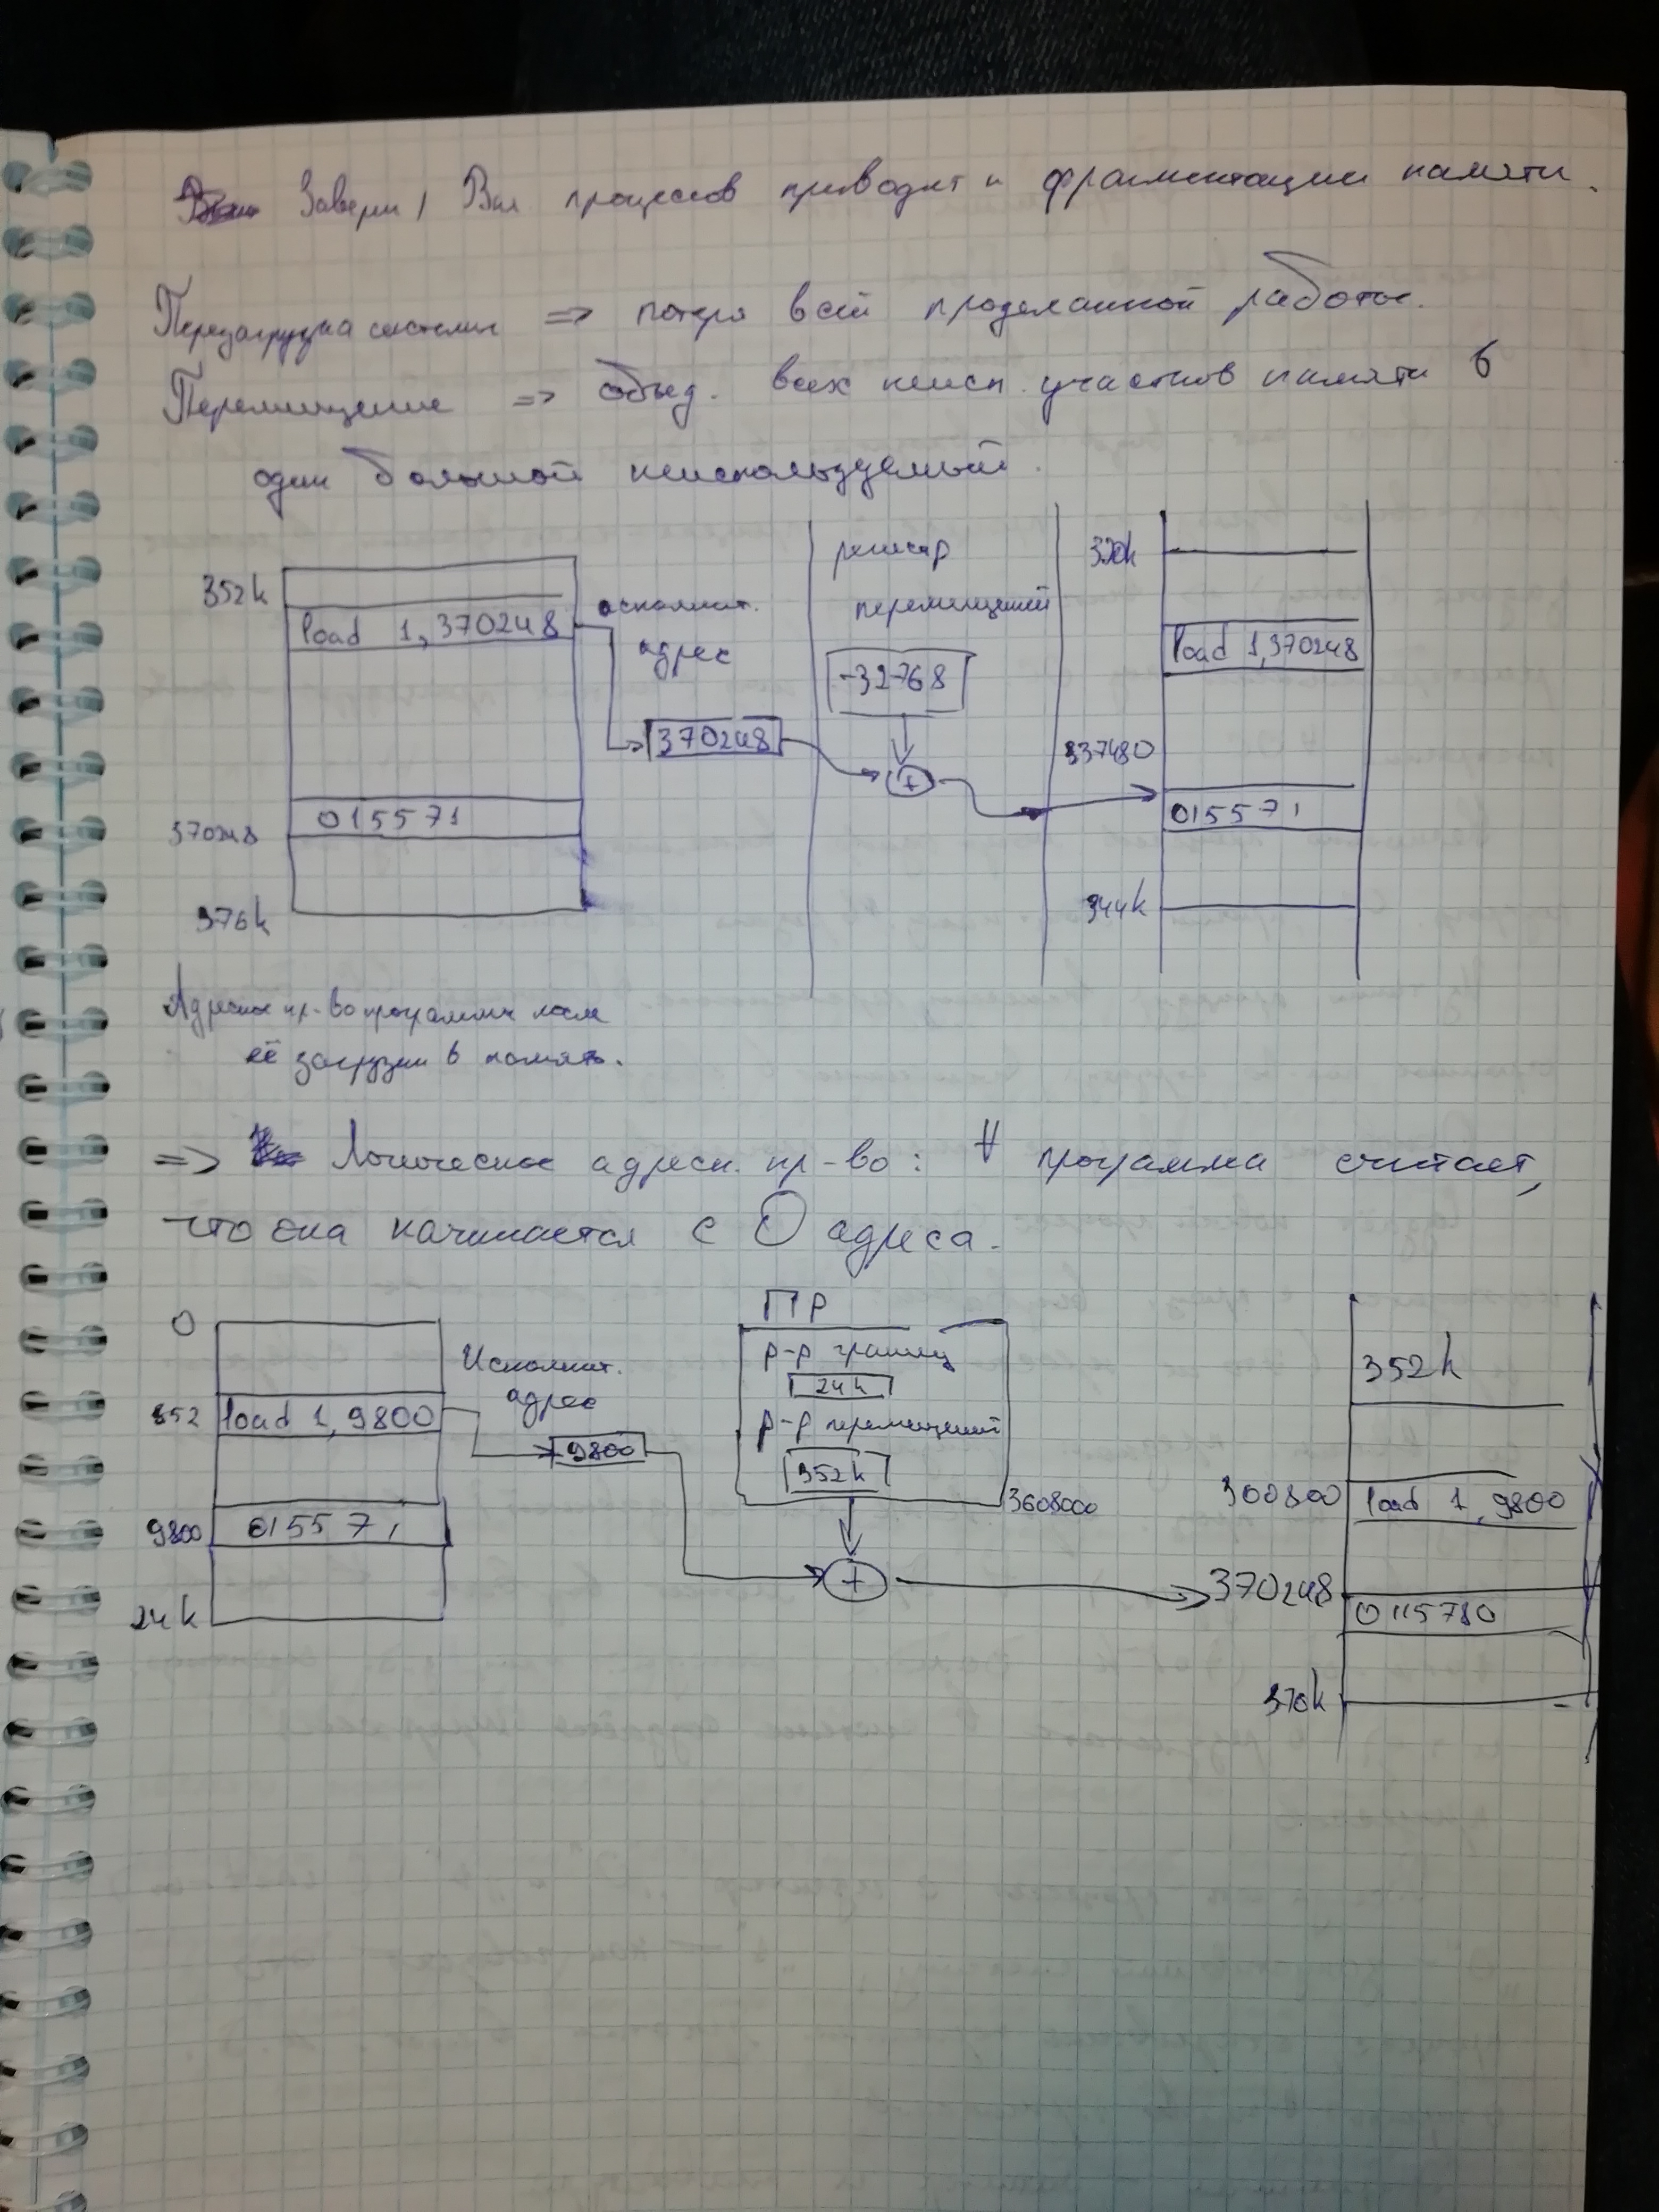 Заверш / Вып процессов приводит к фрагментации памяти.
Перезагрузка системы => потеря всей проделанной работы.
Перемещение => объед. всех неисп. участков памяти в
один большой неиспользуемый.
352k
load 1, 370248
исполнит.
адрес
370248
015571
370248
376k
регистр
перемещений
-32768
+
320k
load 1,370248
337480
015571
344k
Адресное пр-во программы после
её загрузки в память.
=> Логическое адресн. пр-во: ∀ программа считает,
что она начинается с 0 адреса.
0
load 1, 9800
9800
015571
24k
Исполнит.
адрес
9800
ПР
р-р границ
24k
р-р перемещений
352k
3608000
+
352k
300800
load 1, 9800
370248
0115780
370k